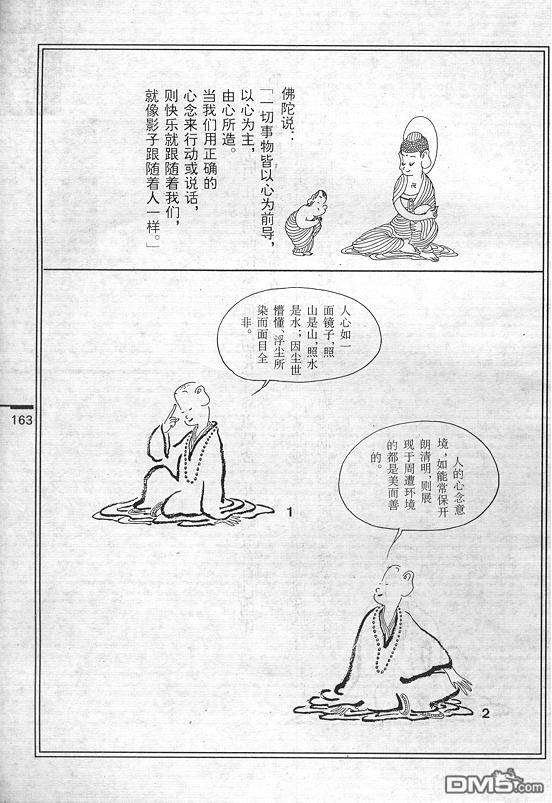 佛陀说：
「一切事物皆以心为前导，
以心为主，
由心所造。
当我们用正确的
心念来行动或说话，
则快乐就跟随着我们，
就像影子跟随着人一样。」
人心如一
面镜子，照
山是山，照水
是水；因尘世
懵懂、浮尘所
染而面目全
非。
163
1
人的心念意
境，如能常保开
朗清明，则展
现于周遭环境
的都是美而善
的。
2
DM5.com